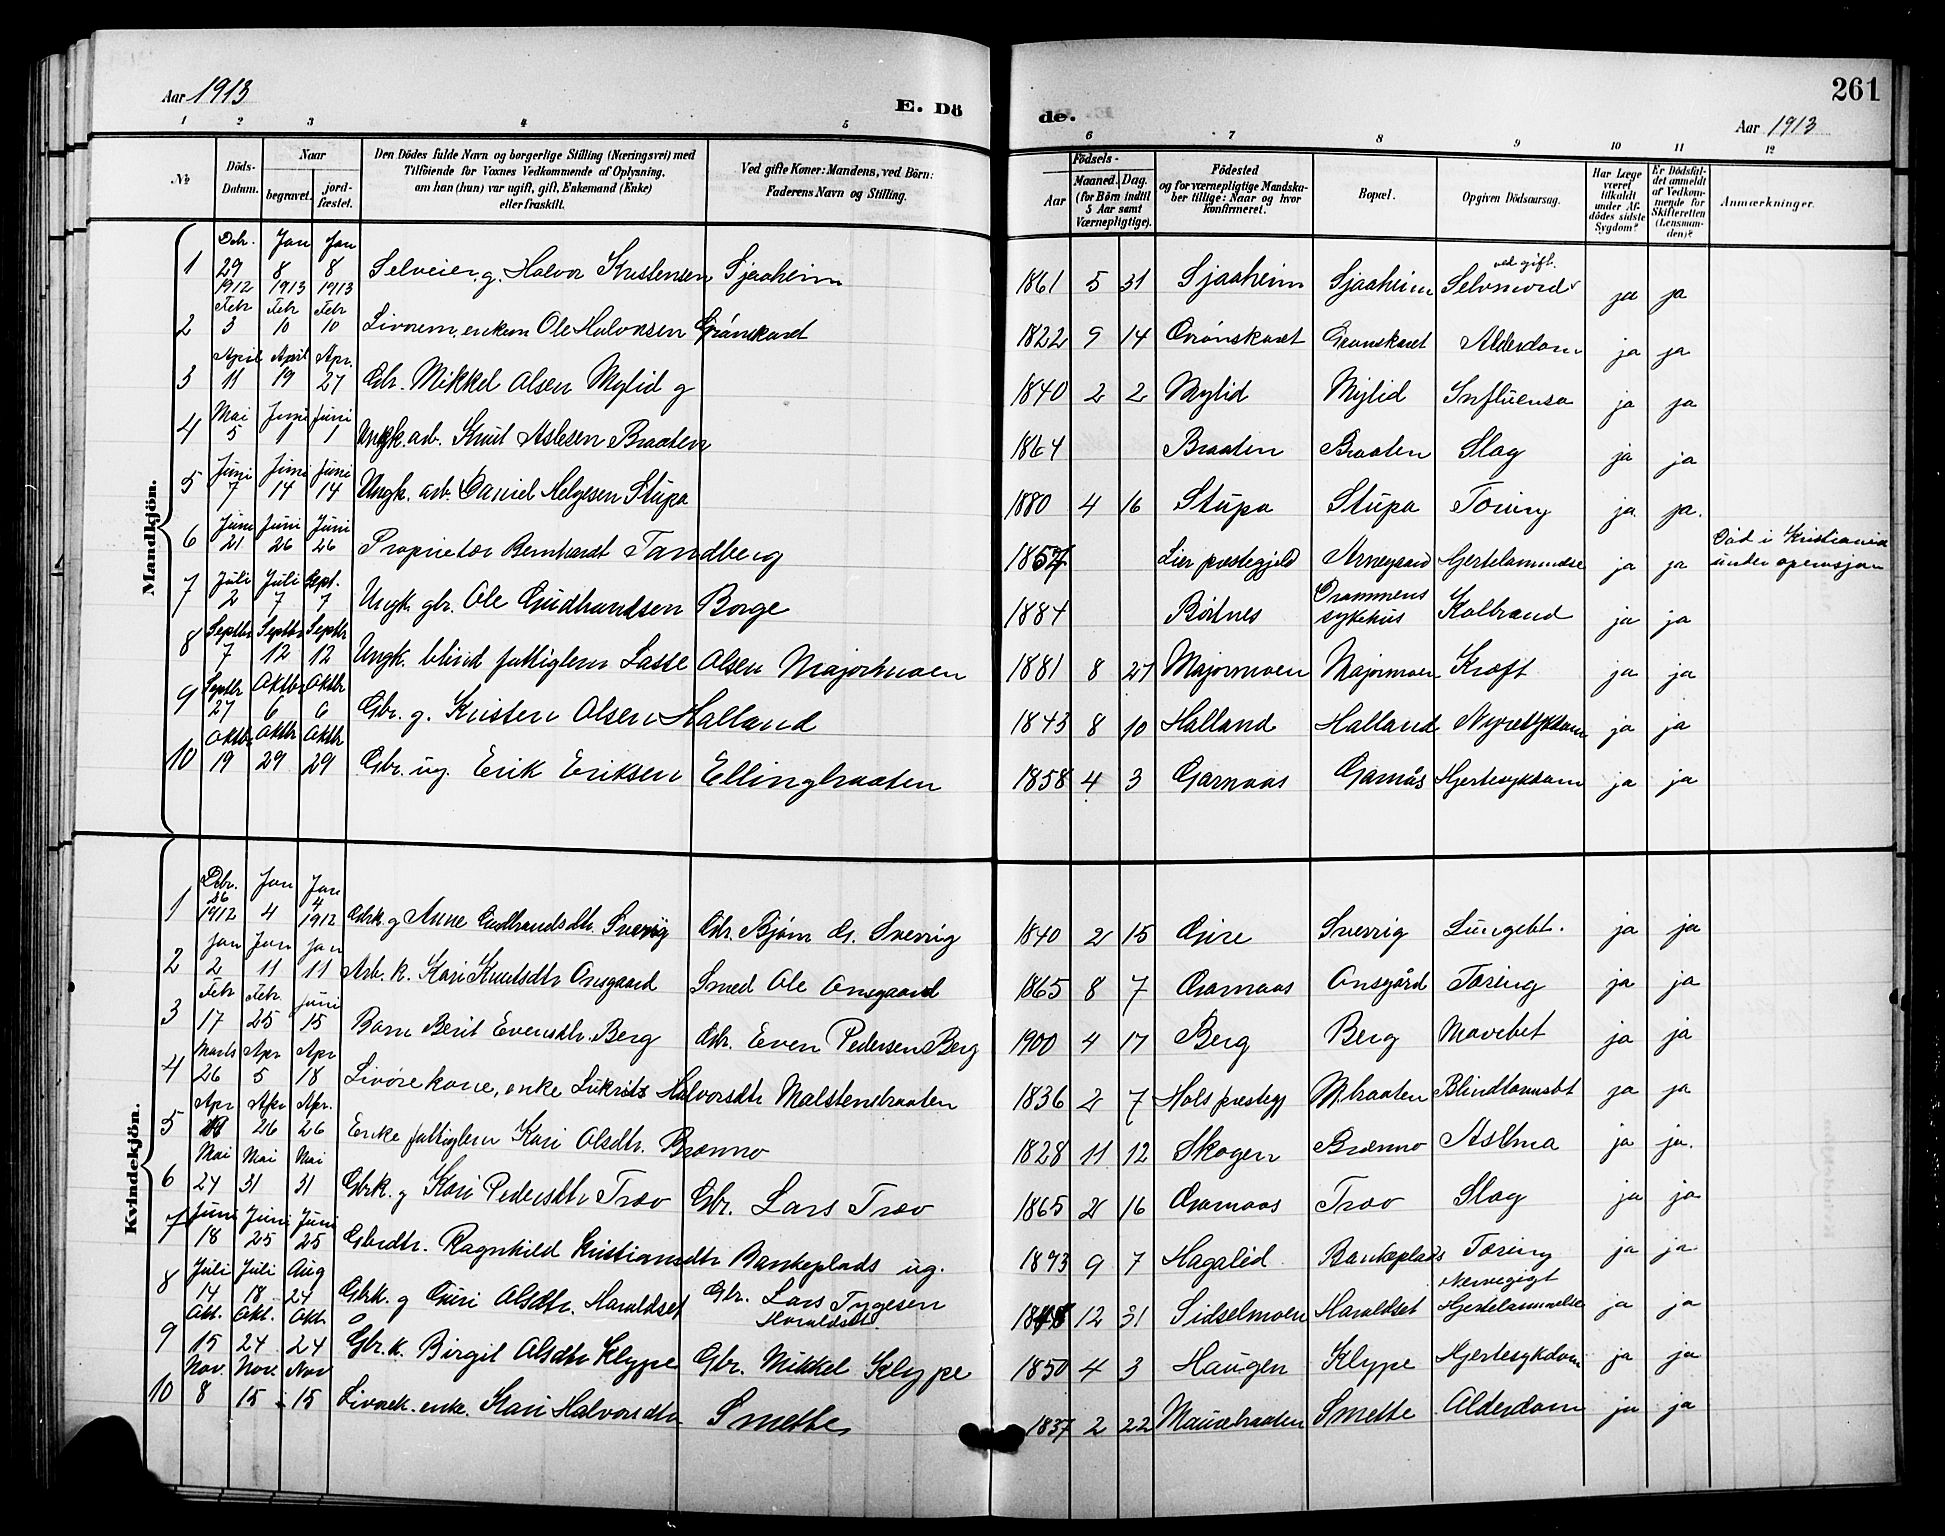 Aar 1913
E. Dö
de.
261
Aar 1913
1 2 3 4 5 6 7 8 9 10 11 12
No
Döds-Datum.
Naar
begravet.
jord-fæstet.
Den Dödes fulde Navn og borgerlige Stilling (Næringsvei) med
Tilföiende for Voxnes Vedkommende af Oplysning.
om han (hun) var ugift, gift, Enkemand (Enke)
eller fraskilt.
Ved gifte Koner: Mandens, ved Börn:
Faderens Navn og Stilling.
Födsels-
Aar
Maaned. Dag.
(for Börn indtil
5 Aar samt
Værnepligtige).
Födested
og for værnepligtige Mandska-
ber tillige: Naar og hvor
konfirmeret.
Bopæl.
Opgiven Dödsaarsag.
Har Læge
været
tilkaldt
under Af-
dödes sidste
Sygdom?
Er Dödsfal-
det anmeldt
af Vedkom-
mende for
Skifteretten
(Lensman-
den)?
Anmærkninger.
Mandkjön.
1 Dcbr. 29 1912 Jan 8 1913 Jan 8 1913 Selveier g. Halvor Kristensen Sjaaheim 1861 5 31 Sjaaheim Sjaaheim Selvmord ved gift. ja ja
2 Febr 3 Febr 10 Febr 10 Livörem. enkem Ole Halvorsen Grönskaret 1822 9 14 Grönskaret Grönskaret Alderdom ja ja
3 April 11 April 19 Apr. 27 Gbr. Mikkel Olsen Mylid g 1840 2 2 Mylid Mylid Influensa ja ja
4 Mai 5 Juni 1 Juni 1 Ungk. arb. Knut Aslesen Braaten 1864 Braaten Braaten Slag ja ja
5 Juni 7 Juni 14 Juni 14 Ungk. arb. Daniel Helgesen Stupa 1880 4 16 Stupa Stupa Tæring ja ja.
6 Juni 21 Juni 26 Juni 26 Proprietær Bernhardt Tandberg Lier præstegjeld Arnegaard Hjertelammelse ja ja Död i Kristiania
under operasjon
7 Juli 2 Juli 7 Sept. 7 Ungk. gbr. Ole Gudbrandsen Borge 1884 Börtnes Drammens
sykehus Kolbrand ja ja
8 Septbr 7 Septbr 12 Septbr 12 Ungk. blind fattiglem Lasse Olsen Majormoen 1881 8 27 Majormoen Majormoen Kræft ja ja
9 Septbr 27 Oktbr 6 Oktbr 6 Gbr. g. Kristen Olsen Halland 1843 8 10 Halland Halland Nyresykdom ja ja
10 Oktbr 19 Oktbr 29 Oktbr 29 Gbr. ug. Erik Eriksen Ellingbraaten 1858 4 3 Garnaas Garnås Hjertesykdom ja ja
Kvindekjön.
1 Dcbr. 26 1912 Jan 4 Jan 4 1912 Gbrk. g Anne Gudbrandsdtr. Sverrig Gbr. Bjørn G. Sverrig 1840 2 15 Gjire Sverrig Lungebt. ja ja
2 Jan 2 Jan 11 Jan 11 Arb. k. Kari Knutsdtr Onsgaard Smed Ole Onsgaard 1865 8 7 Garnaas Onsgård Tæring ja ja
3 Febr 17 Febr. 25 Juni 15 Barn Berit Evensdtr. Berg Gbr. Even Pedersen Berg 1900 4 17 Berg Berg Mavebet ja ja
4 Marts 26 Apr 5 Apr 18 Livörekone, enke Lukrets Halvorsdtr Malstenbraaten 1836 2 7 Hols præstegj M.braaten Blindtarmsbt ja ja
5 Apr Apr 26 Apr. 26 Enke fattiglem Kari Olsdtr. Brænno 1828 11 12 Skogen Brænno Astma ja ja.
6 Mai 24 Mai 31 Mai 31 Gbrk. g Kari Pedersdtr Træv Gbr. Lars Træv 1865 2 16 Garnaas Træv Slag ja ja
7 Juni 18 Juni 25 Juni 25 Gbrdtr. Ragnhild Kristiansdtr Bankeplads ug. 1893 9 7 Hagalid Bankeplads Tæring ja ja
8 Juli 14 Juli 18 Aug 24 Gbrk. g Guri Olsdtr. Haraldset Gbr. Lars Tygesen
Haraldset. 12 31 Sidselmoen Haraldset Nervegigt
Hjertelammelse ja ja
9 Okt. 15 Okt. 24 Okt 24 Gbr. k. Birgit Olsdtr Klype Gbr. Mikkel Klype 1850 4 3 Haugen Klype Hjertesykdom ja ja
10 Nov. 8 Nov. 15 Nov 15 Livörek. enke. Kari Halvorsdtr Smette 1837 2 22 Smette Alderdom ja ja